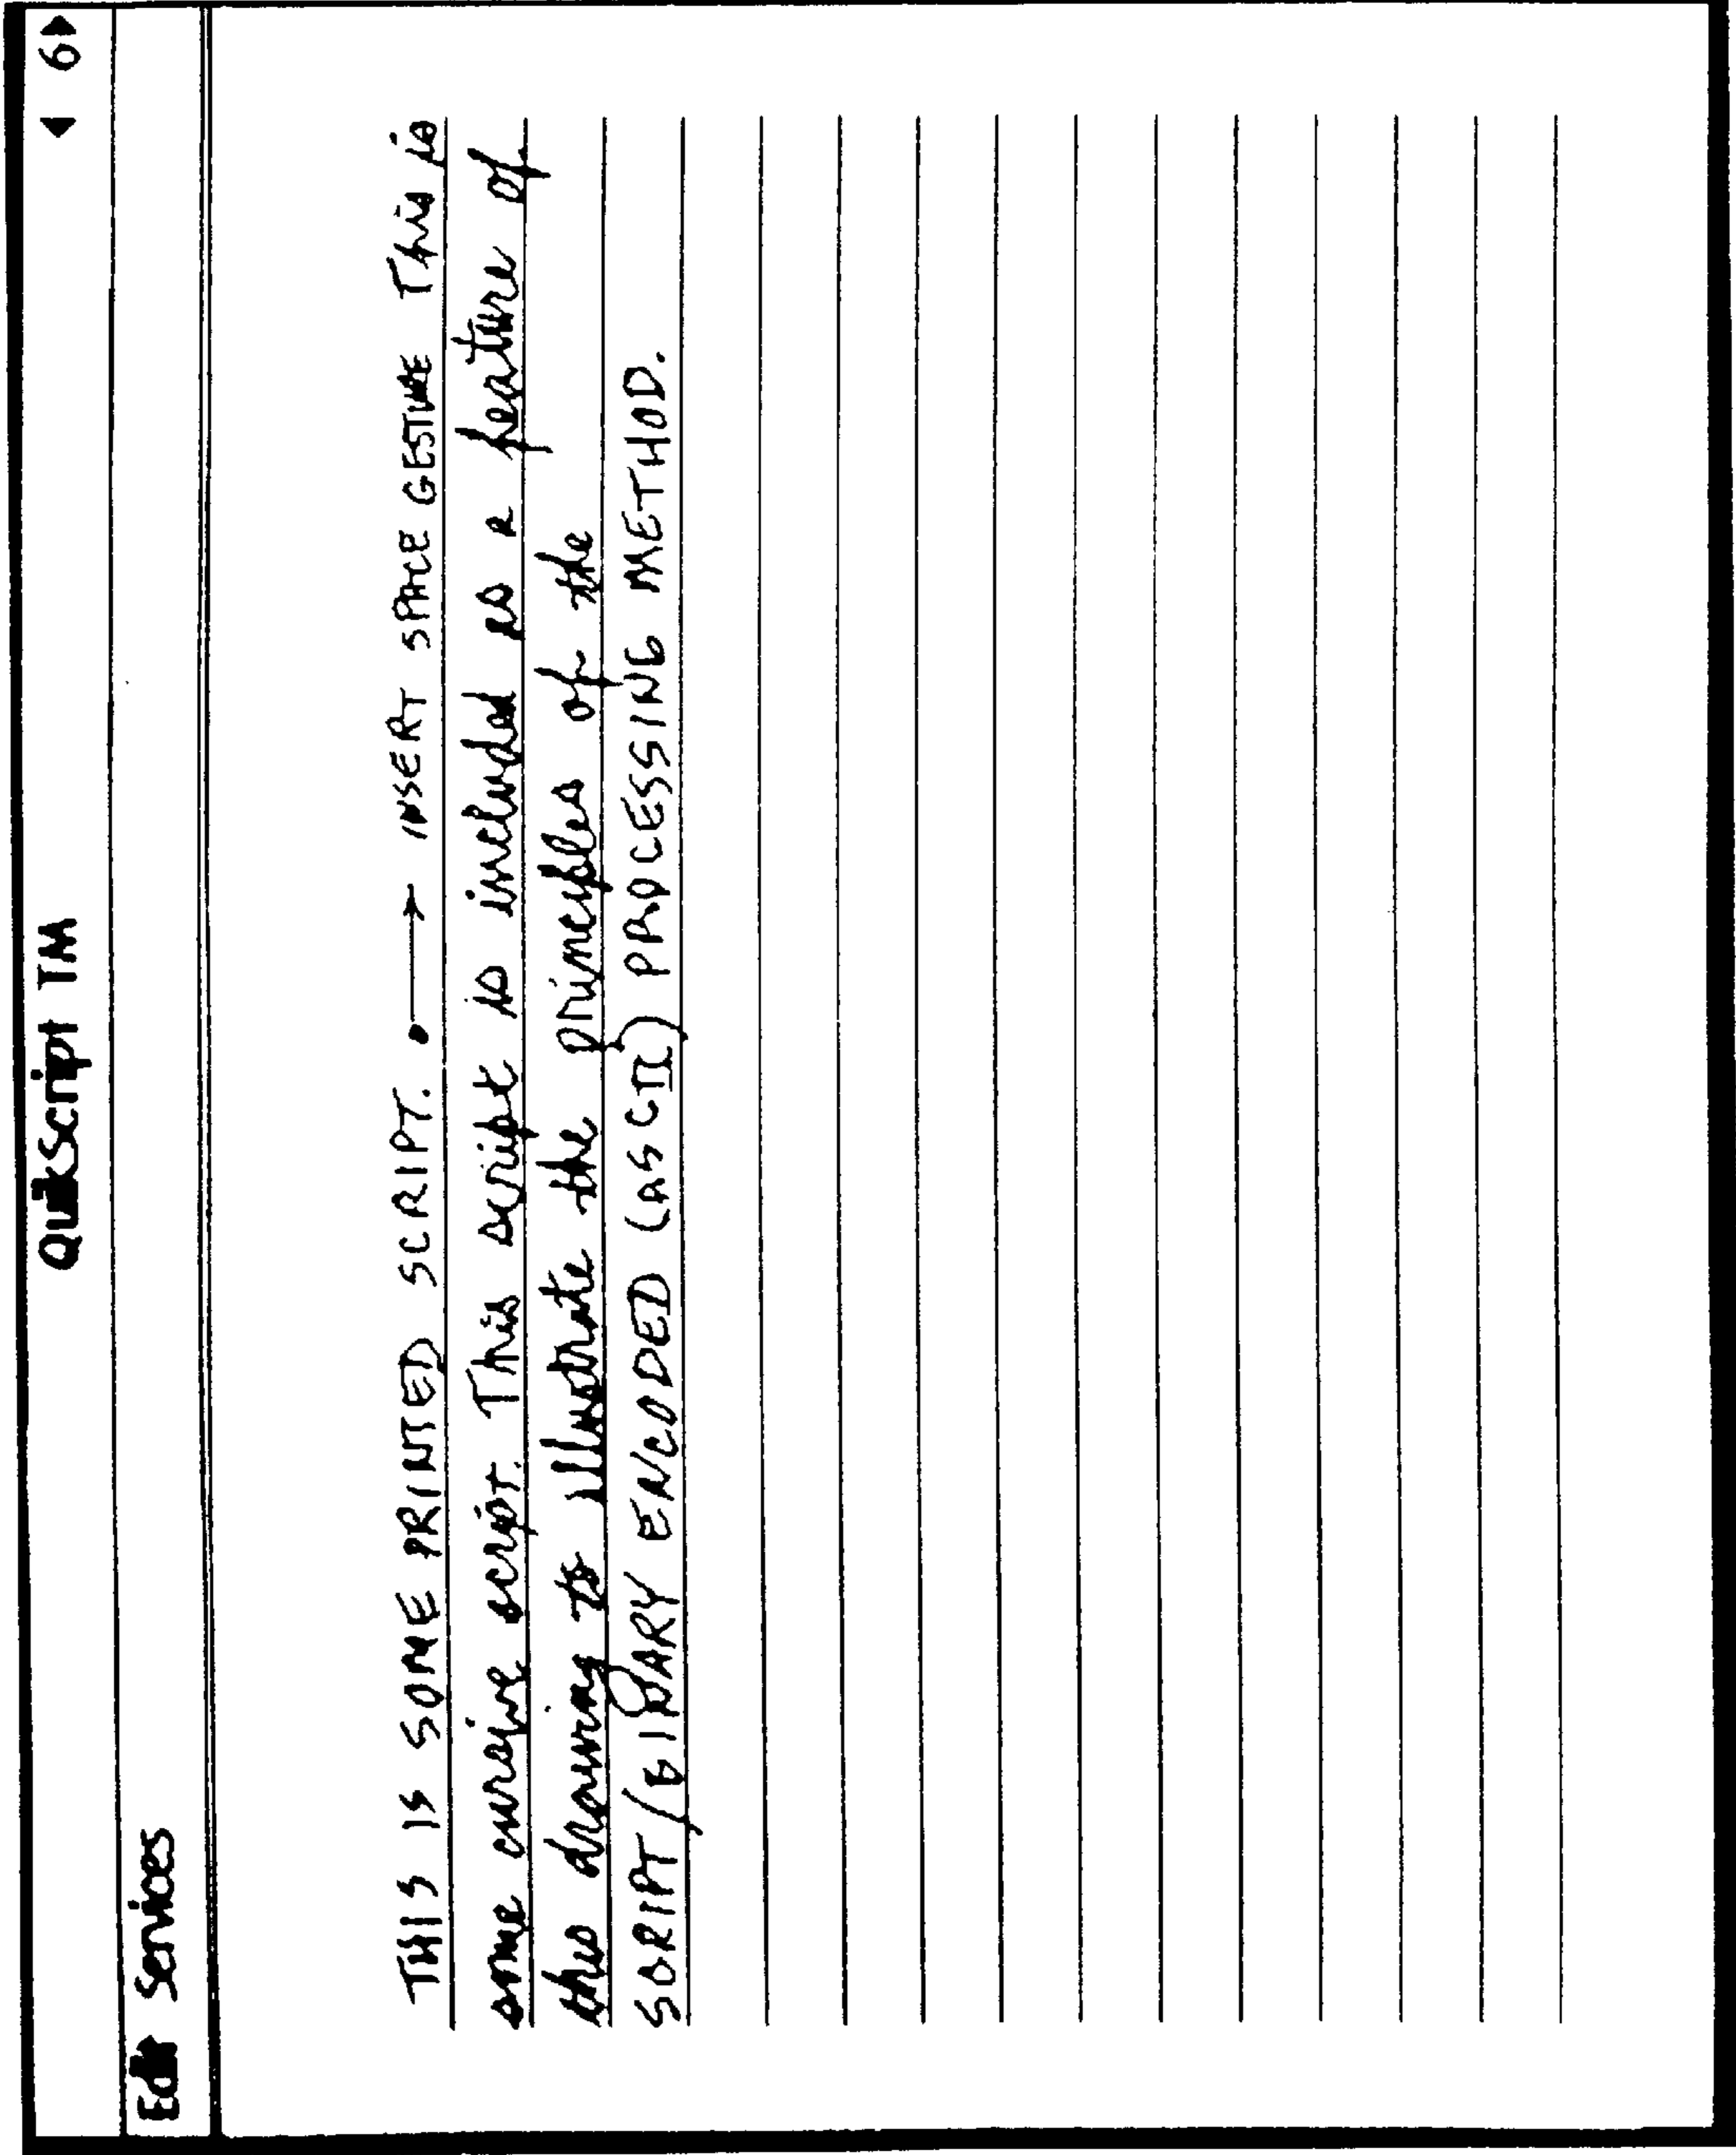 QuikScript TM ◀ 6▶
Edit Services
THIS IS SOME PRINTED SCRIPT. •⟶ INSERT SPACE GESTURE This is
some cursive script. This script is included as a feature of
this drawing to illustrate the principles of the
SCRIPT/(BINARY ENCODED (ASCII) PROCESSING METHOD.